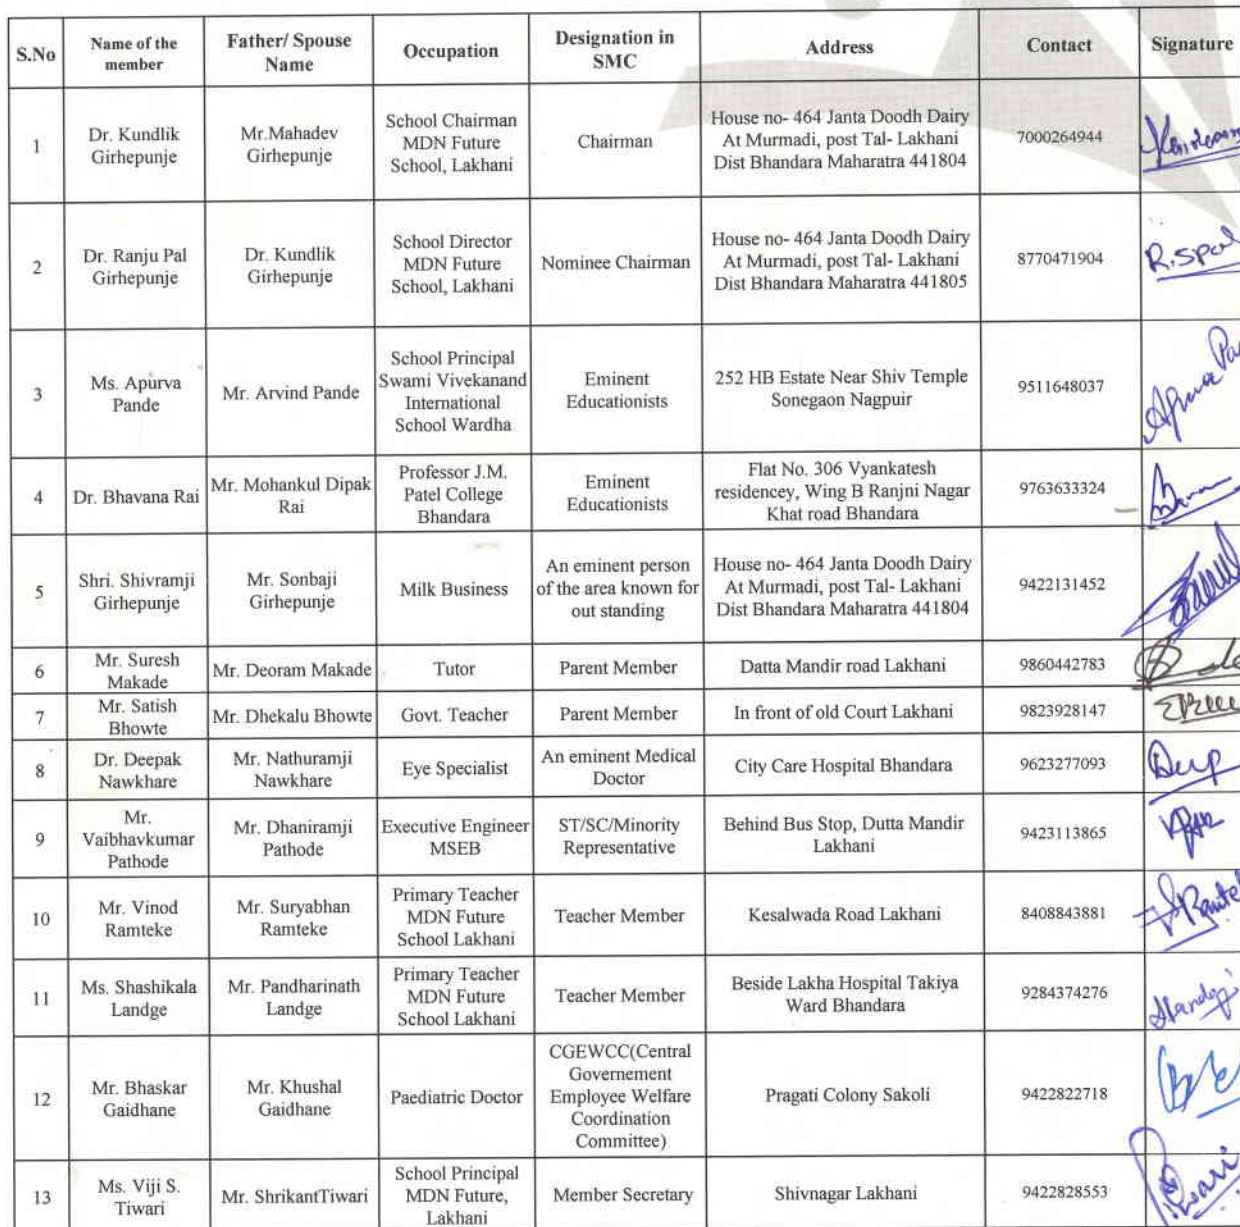 S.No Name of the member Father/ Spouse Name Occupation Designation in SMC Address Contact Signature
1 Dr. Kundlik Girhepunje Mr.Mahadev Girhepunje School Chairman MDN Future School, Lakhani Chairman House no- 464 Janta Doodh Dairy At Murmadi, post Tal- Lakhani Dist Bhandara Maharatra 441804 7000264944
2 Dr. Ranju Pal Girhepunje Dr. Kundlik Girhepunje School Director MDN Future School, Lakhani Nominee Chairman House no- 464 Janta Doodh Dairy At Murmadi, post Tal- Lakhani Dist Bhandara Maharatra 441805 8770471904 R.Spal
3 Ms. Apurva Pande Mr. Arvind Pande School Principal Swami Vivekanand International School Wardha Eminent Educationists 252 HB Estate Near Shiv Temple Sonegaon Nagpuir 9511648037
4 Dr. Bhavana Rai Mr. Mohankul Dipak Rai Professor J.M. Patel College Bhandara Eminent Educationists Flat No. 306 Vyankatesh residencey, Wing B Ranjni Nagar Khat road Bhandara 9763633324
5 Shri. Shivramji Girhepunje Mr. Sonbaji Girhepunje Milk Business An eminent person of the area known for out standing House no- 464 Janta Doodh Dairy At Murmadi, post Tal- Lakhani Dist Bhandara Maharatra 441804 9422131452
6 Mr. Suresh Makade Mr. Deoram Makade Tutor Parent Member Datta Mandir road Lakhani 9860442783
7 Mr. Satish Bhowte Mr. Dhekalu Bhowte Govt. Teacher Parent Member In front of old Court Lakhani 9823928147
8 Dr. Deepak Nawkhare Mr. Nathuramji Nawkhare Eye Specialist An eminent Medical Doctor City Care Hospital Bhandara 9623277093
9 Mr. Vaibhavkumar Pathode Mr. Dhaniramji Pathode Executive Engineer MSEB ST/SC/Minority Representative Behind Bus Stop, Dutta Mandir Lakhani 9423113865
10 Mr. Vinod Ramteke Mr. Suryabhan Ramteke Primary Teacher MDN Future School Lakhani Teacher Member Kesalwada Road Lakhani 8408843881
11 Ms. Shashikala Landge Mr. Pandharinath Landge Primary Teacher MDN Future School Lakhani Teacher Member Beside Lakha Hospital Takiya Ward Bhandara 9284374276
12 Mr. Bhaskar Gaidhane Mr. Khushal Gaidhane Paediatric Doctor CGEWCC(Central Governement Employee Welfare Coordination Committee) Pragati Colony Sakoli 9422822718
13 Ms. Viji S. Tiwari Mr. ShrikantTiwari School Principal MDN Future, Lakhani Member Secretary Shivnagar Lakhani 9422828553